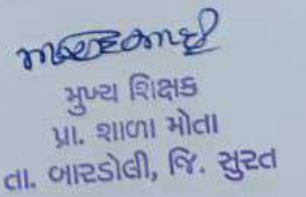 મુખ્ય શિક્ષક
પ્રા. શાળા મોતા
તા. બારડોલી, જિ. સુરત